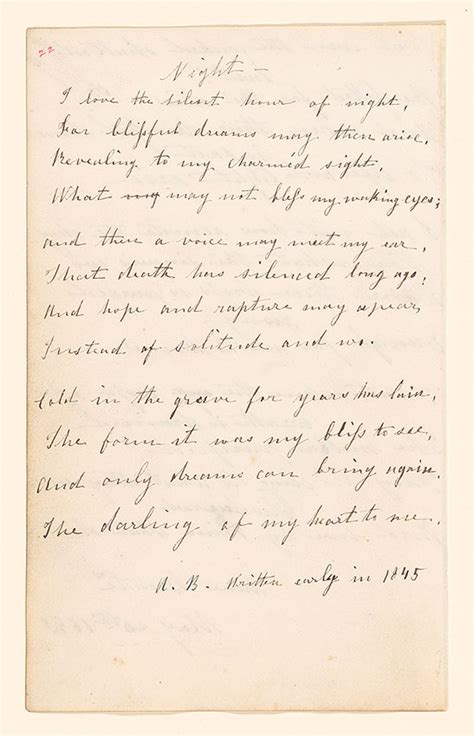 22
Night –
I love the silent hour of night,
For blissful dreams may then arise,
Revealing to my charmèd sight,
What my may not bless my waking eyes;
and then a voice may meet my ear,
That death has silenced long ago;
And hope and rapture may apear,
Instead of solitude and wo.
Cold in the grave for years has lain,
The form it was my bliss to see,
And only dreams can bring again,
The darling of my heart to me.
A. B. Written early in 1845